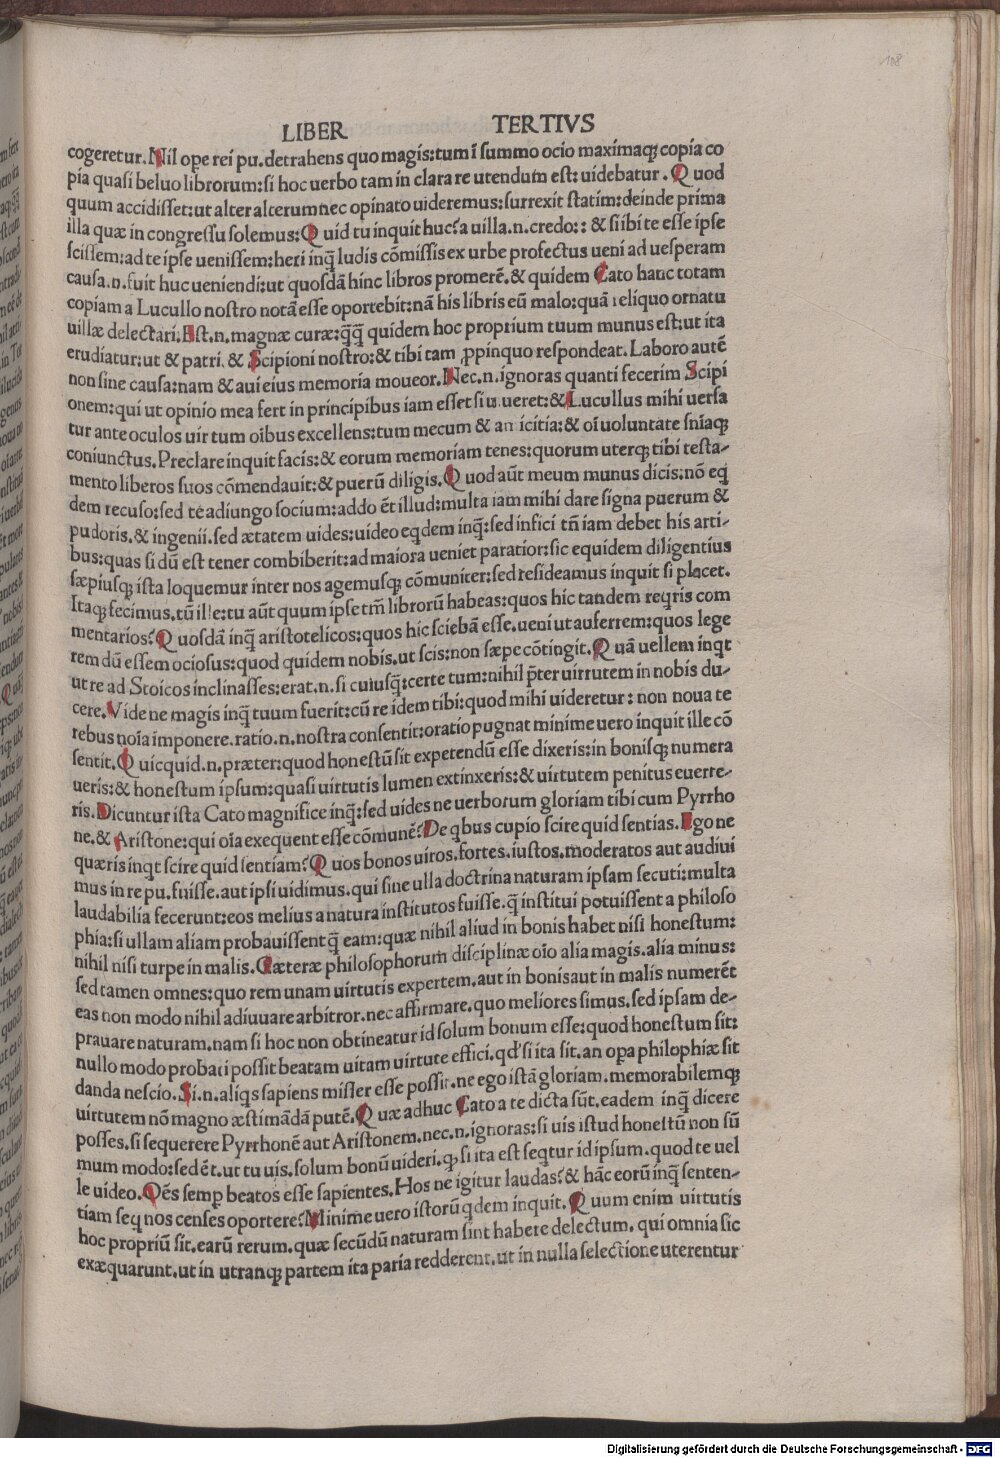 108
LIBER TERTIVS
cogeretur. Nil ope rei pu. detrahens quo magis: tum ĩ summo ocio maximaqꝫ copia co
pia quasi beluo librorum: si hoc uerbo tam in clara re utendum est: uidebatur. Quod
quum accidisset: ut alter alterum nec opinato uideremus: surrexit statim: deinde prima
illa quæ in congressu solemus: Quid tu inquit huc? a uilla .n. credo: : & si ibi te esse ipse
scissem: ad te ipse uenissem: heri inq̃ ludis cõmissis ex urbe profectus ueni ad uesperam
causa .n. fuit huc ueniendi: ut quosdã hinc libros promerẽ. & quidem Cato hanc totam
copiam a Lucullo nostro notã esse oportebit: nã his libris eũ malo: quã reliquo ornatu
uillæ delectari. Est .n. magnæ curæ: q̃q̃ quidem hoc proprium tuum munus est: ut ita
erudiatur: ut & patri. & Scipioni nostro: & tibi tam ꝓpinquo respondeat. Laboro autẽ
non sine causa: nam & aui eius memoria moueor. Nec .n. ignoras quanti fecerim Scipi
onem: qui ut opinio mea fert in principibus iam esset si uiueret: & Lucullus mihi uersa
tur ante oculos uir tum oĩbus excellens: tum mecum & amicitia: & oĩ uoluntate sñiaqꝫ
coniunctus. Preclare inquit facis: & eorum memoriam tenes: quorum uterqꝫ tibi testa-
mento liberos suos cõmendauit: & puerũ diligis. Quod aũt meum munus dicis: nõ eq
dem recuso: sed te adiungo socium: addo ẽt illud: multa iam mihi dare signa puerum &
pudoris. & ingenii. sed ætatem uides: uideo eqdem inq̃: sed infici tñ iam debet his arti-
bus: quas si dũ est tener combiberit: ad maiora ueniet paratior: sic equidem diligentius
sæpiusqꝫ ista loquemur inter nos agemusqꝫ cõmuniter: sed resideamus inquit si placet.
Itaqꝫ fecimus. tũ ille: tu aũt quum ipse tm̃ librorũ habeas: quos hic tandem reqris com
mentarios? Quosdã inq̃ aristotelicos: quos hic sciebã esse. ueni ut auferrem: quos lege
rem dũ essem ociosus: quod quidem nobis. ut scis: non sæpe cõtingit. Quã uellem inqt
ut re ad Stoicos inclinasses: erat .n. si cuiusq̃: certe tum: nihil p̃ter uirtutem in nobis du-
cere. Vide ne magis inq̃ tuum fuerit: cũ re idem tibi: quod mihi uideretur: non noua te
rebus noĩa imponere. ratio .n. nostra consentit: oratio pugnat minime uero inquit ille cõ
sentit. Quicquid .n. præter: quod honestũ sit expetendũ esse dixeris: in bonisqꝫ numera
ueris: & honestum ipsum: quasi uirtutis lumen extinxeris: & uirtutem penitus euerte-
ris. Dicuntur ista Cato magnifice inq̃: sed uides ne uerborum gloriam tibi cum Pyrrho
ne. & Aristone: qui oĩa exequent esse cõmunẽ? De qbus cupio scire quid sentias. Ego ne
quæris inqt scire quid sentiam? Quos bonos uiros. fortes. iustos. moderatos aut audiui
mus in re pu. fuisse. aut ipsi uidimus. qui sine ulla doctrina naturam ipsam secuti: multa
laudabilia fecerunt: eos melius a natura institutos fuisse. q̃ institui potuissent a philoso
phia: si ullam aliam probauissent q̃ eam: quæ nihil aliud in bonis habet nisi honestum:
nihil nisi turpe in malis. Cæteræ philosophorum disciplinæ oĩo alia magis. alia minus:
sed tamen omnes: quo rem unam uirtutis expertem. aut in bonis aut in malis numerẽt
eas non modo nihil adiuuare arbitror. nec affirmare. quo meliores simus. sed ipsam de-
prauare naturam. nam si hoc non obtineatur id solum bonum esse: quod honestum sit:
nullo modo probari possit beatam uitam uirtute effici. qđ si ita sit. an opa philophiæ sit
danda nescio. Si .n. aliqs sapiens miser esse possit. ne ego istã gloriam. memorabilemqꝫ
uirtutem nõ magno æstimãdã putẽ. Quæ adhuc Cato a te dicta sũt. eadem inq̃ dicere
posses. si sequerere Pyrrhonẽ aut Aristonem. nec .n. ignoras: si uis istud honestũ non sũ
mum modo: sed ẽt. ut tu uis. solum bonũ uideri. ꝙ si ita est seqtur id ipsum. quod te uel
le uideo. Oẽs semp beatos esse sapientes. Hos ne igitur laudas? & hãc eorũ inq̃ senten-
tiam seq nos censes oportere? Minime uero istorũ qdem inquit. Quum enim uirtutis
hoc propriũ sit. earũ rerum. quæ secũdũ naturam sint habere delectum. qui omnia sic
exæquarunt. ut in utranqꝫ partem ita paria redderent. ut in nulla selectione uterentur
Digitalisierung gefördert durch die Deutsche Forschungsgemeinschaft - DFG